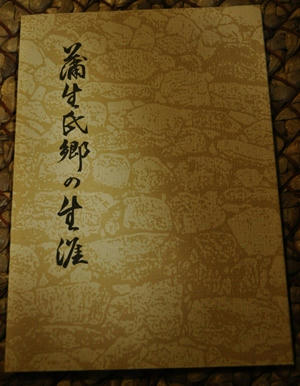 蒲生氏郷の生涯